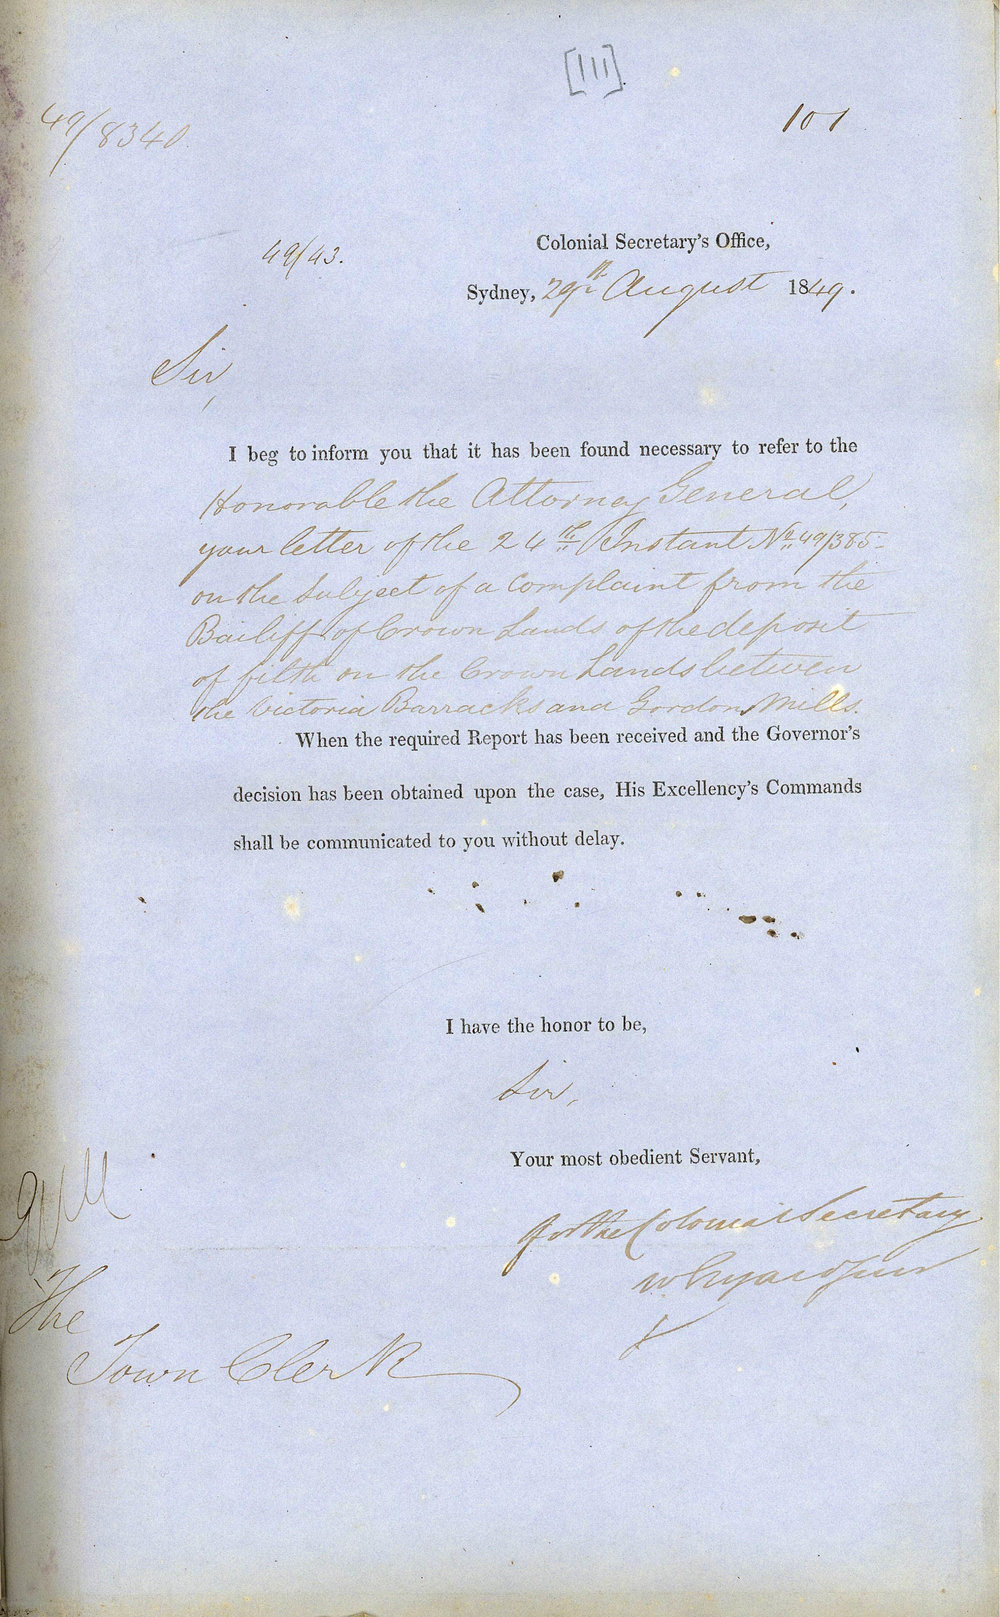 [111]
101
49/8340.
Colonial Secretary's Office,
49/43.
Sydney, 29th August 1849.
Sir,
I beg to inform you that it has been found necessary to refer to the
Honorable the Attorney General,
your letter of the 24th Instant No. 49/385
on the Subject of a Complaint from the
Bailiff of Crown Lands of the deposit
of filth on the Crown Lands between
the Victoria Barracks and Gordon Mills.
When the required Report has been received and the Governor's
decision has been obtained upon the case, His Excellency's Commands
shall be communicated to you without delay.
I have the honor to be,
Sir,
Your most obedient Servant,
For the Colonial Secretary
W Elyard Junr
The
Town Clerk